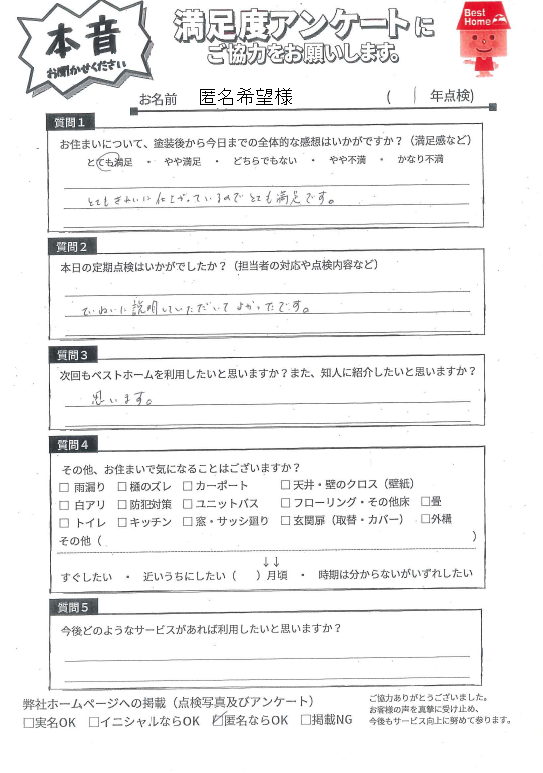 本音
お聞かせください
満足度アンケートに
ご協力をお願いします。
Best Home
お名前 匿名希望様 ( 1 年点検)
質問1
お住まいについて、塗装後から今日までの全体的な感想はいかがですか？（満足感など）
とても満足 ・ やや満足 ・ どちらでもない ・ やや不満 ・ かなり不満
とてもきれいに仕上がっているのでとても満足です。
質問2
本日の定期点検はいかがでしたか？（担当者の対応や点検内容など）
ていねいに説明していただいてよかったです。
質問3
次回もベストホームを利用したいと思いますか？また、知人に紹介したいと思いますか？
思います。
質問4
その他、お住まいで気になることはございますか？
□ 雨漏り □ 樋のズレ □ カーポート □ 天井・壁のクロス（壁紙）
□ 白アリ □ 防犯対策 □ ユニットバス □ フローリング・その他床 □畳
□ トイレ □ キッチン □ 窓・サッシ廻り □ 玄関扉（取替・カバー） □外構
その他（ ）
↓↓
すぐしたい ・ 近いうちにしたい（ ）月頃 ・ 時期は分からないがいずれしたい
質問5
今後どのようなサービスがあれば利用したいと思いますか？
弊社ホームページへの掲載（点検写真及びアンケート）
□実名OK □イニシャルならOK ☑匿名ならOK □掲載NG
ご協力ありがとうございました。
お客様の声を真摯に受け止め、
今後もサービス向上に努めて参ります。